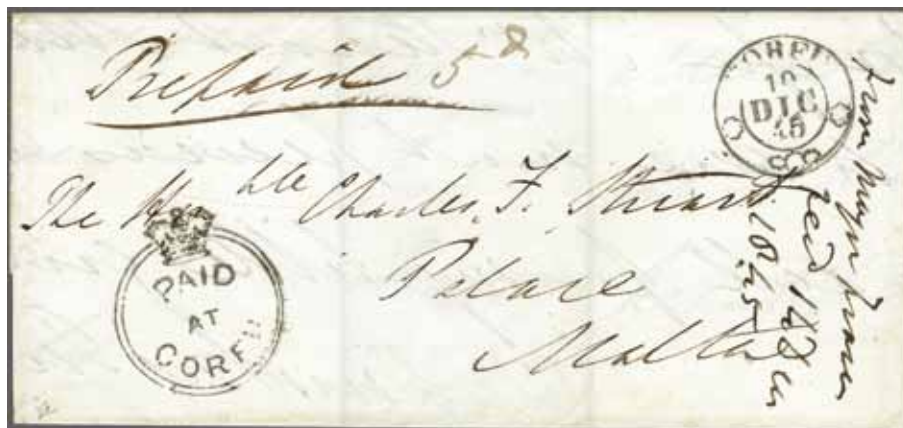 Prepaid 5d
CORFU
10
DIC
45
The Honble Charles F. Stuart
Palace
Malta
PAID
AT
CORFU
from Major Fraser
recd 14 Decr
1845